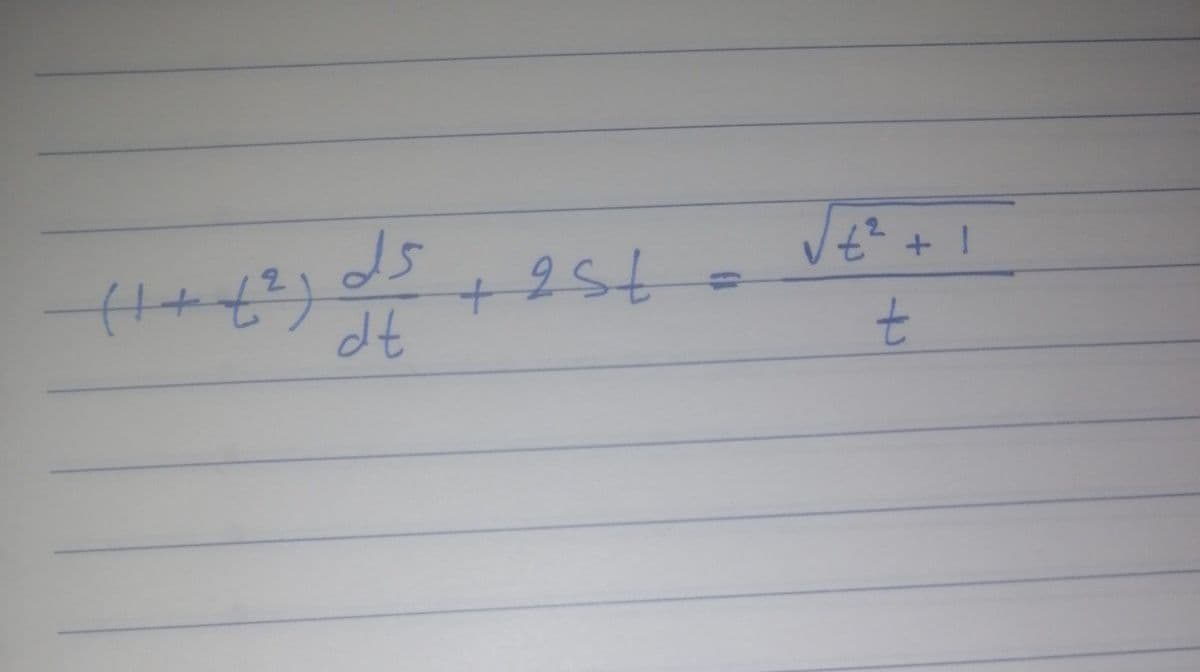 (1 + t²) ds/dt + 2st = √(t² + 1)/t